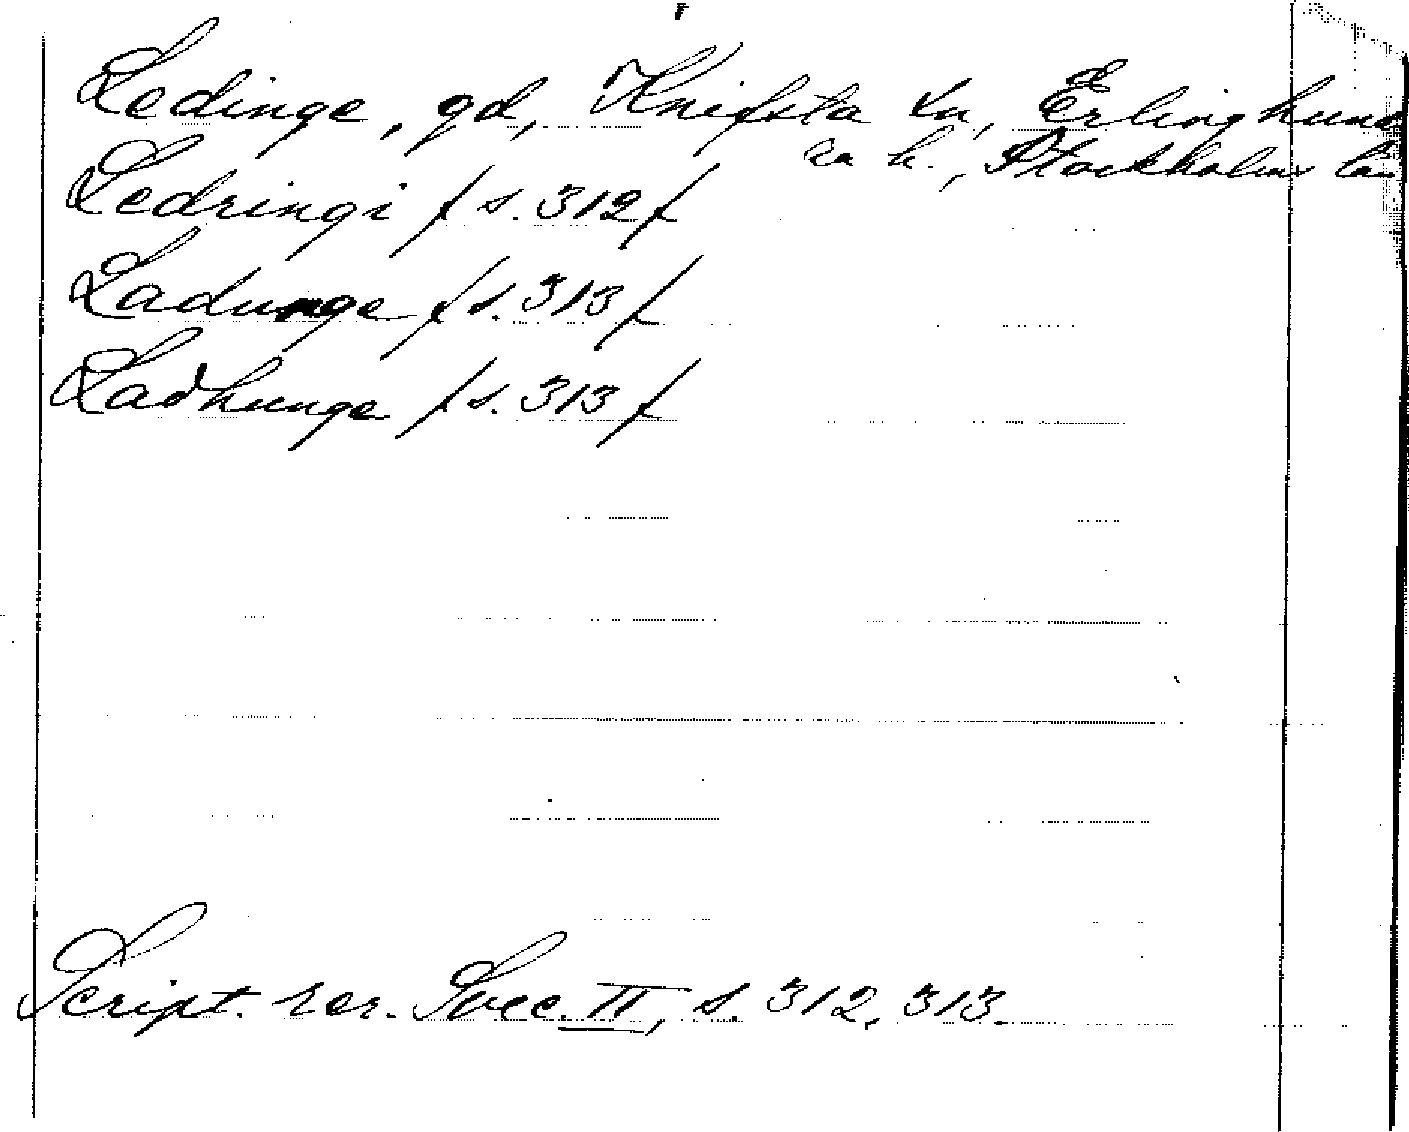 Ledinge, gd, Knifsta sn, Erlinghund
ra h., Stockholms län
Ledringi /s. 312/
Ladunge /s. 313/
Ladhunge /s. 313/
Script. rer. Svec. II, s. 312, 313.